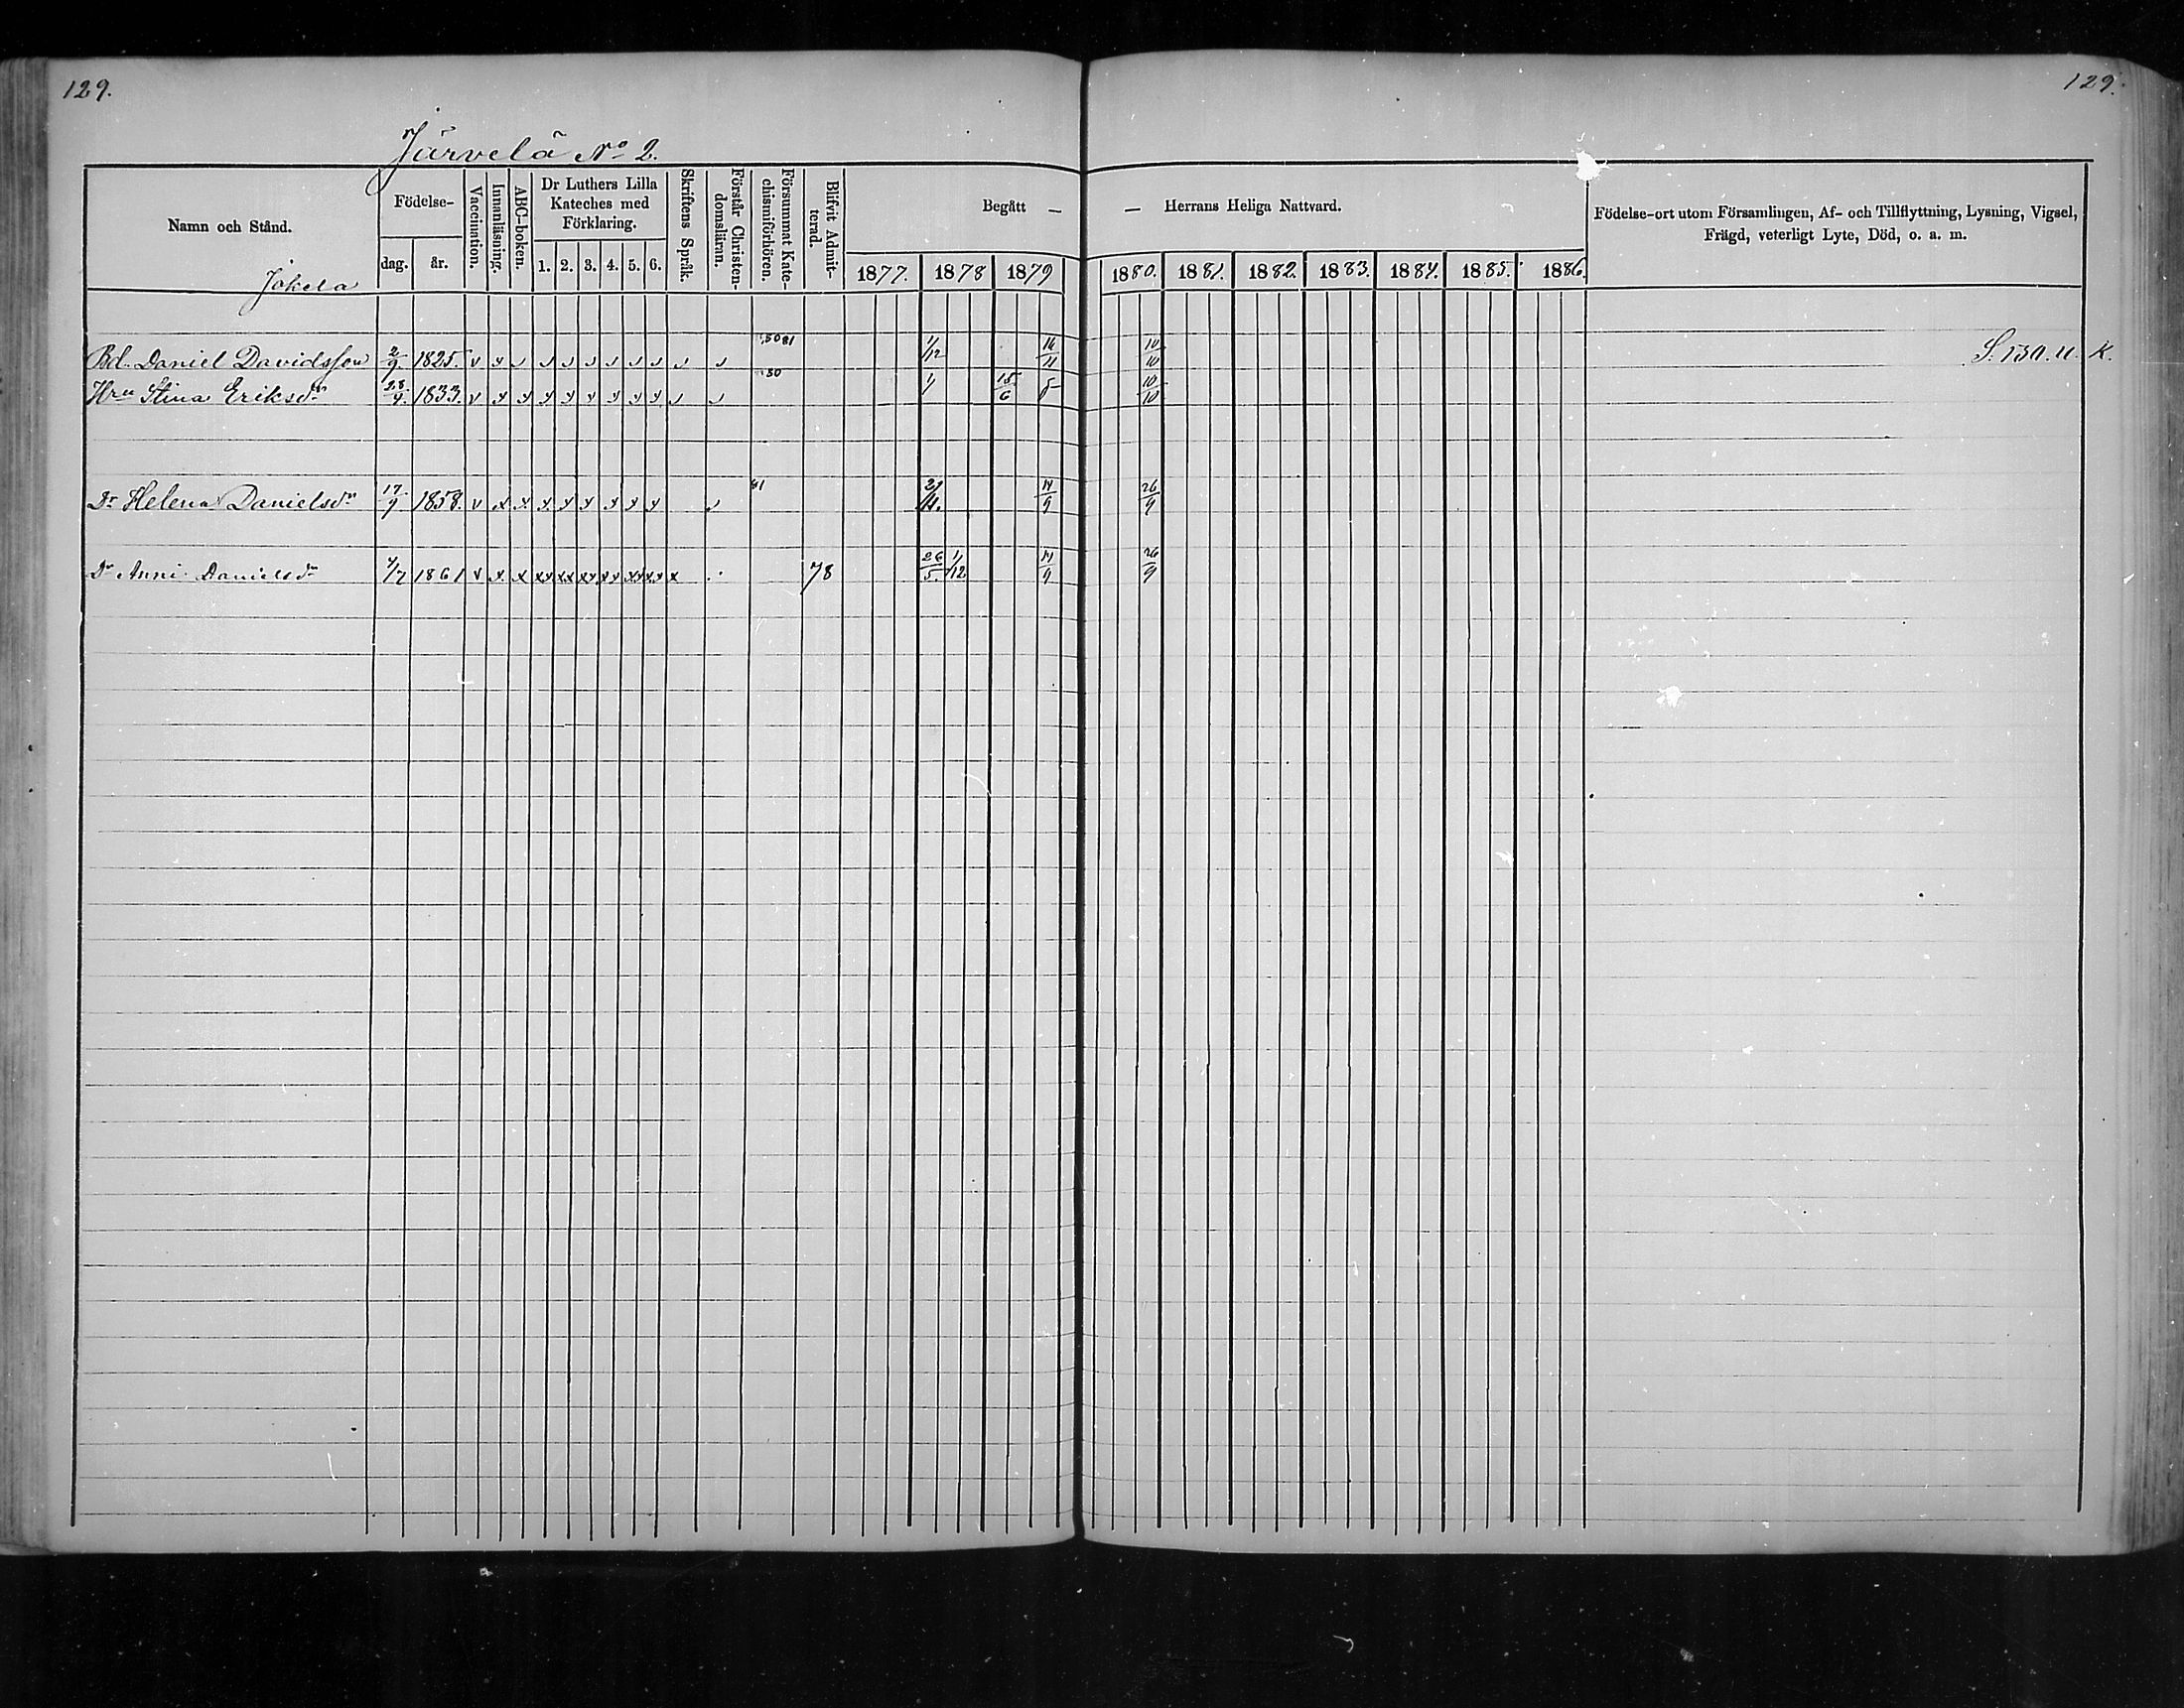 129.
129.
Järvelä No 2.
Namn och Stånd.
Födelse-
dag.
år.
Vaccination.
Innanläsning.
ABC-boken.
Dr Luthers Lilla Kateches med Förklaring.
1. 2. 3. 4. 5. 6.
Skriftens Språk.
Förstår Christendomsläran.
Försummat Katechismiförhören.
Blifvit Admitterad.
Begått — — Herrans Heliga Nattvard.
1877. 1878 1879 1880. 1881. 1882. 1883. 1884. 1885. 1886.
Födelse-ort utom Församlingen, Af- och Tillflyttning, Lysning, Vigsel,
Frägd, veterligt Lyte, Död, o. a. m.
Jokela
Bd. Daniel Davidsson 2/9 1825. 1/12 10/10 S. 130. u. K.
Hru Stina Eriksdr 28/4. 1833. 15/6 10/10
Dr Helena Danielsdr 17/9 1858. 14/9 26/9
Dr Anni Danielsdr 1861 78 26/5 1/12 14/9 26/9